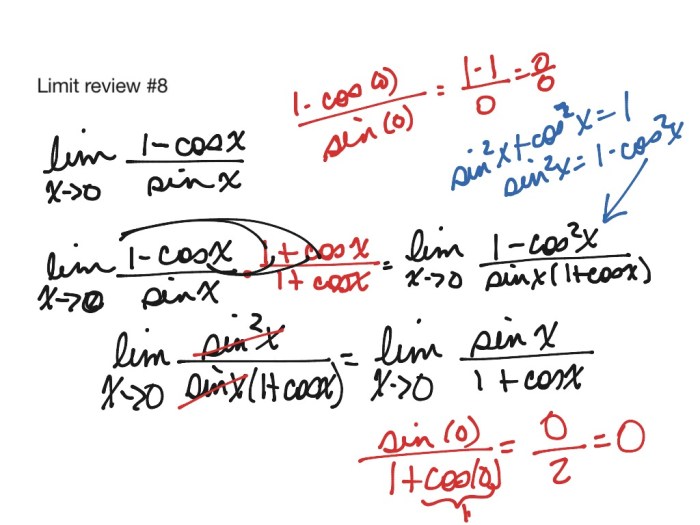 Limit review #8
(1 - cos(0))/(sin(0)) = (1-1)/0 = 0/0
sin²x + cos²x = 1
sin²x = 1 - cos²x
lim x→0 (1 - cosx)/(sinx)
lim x→0 (1 - cosx)/(sinx) · (1 + cosx)/(1 + cosx) = lim x→0 (1 - cos²x)/(sinx(1+cosx))
lim x→0 (sin²x)/(sinx(1+cosx)) = lim x→0 (sinx)/(1 + cosx)
(sin(0))/(1 + cos(0)) = 0/2 = 0
1